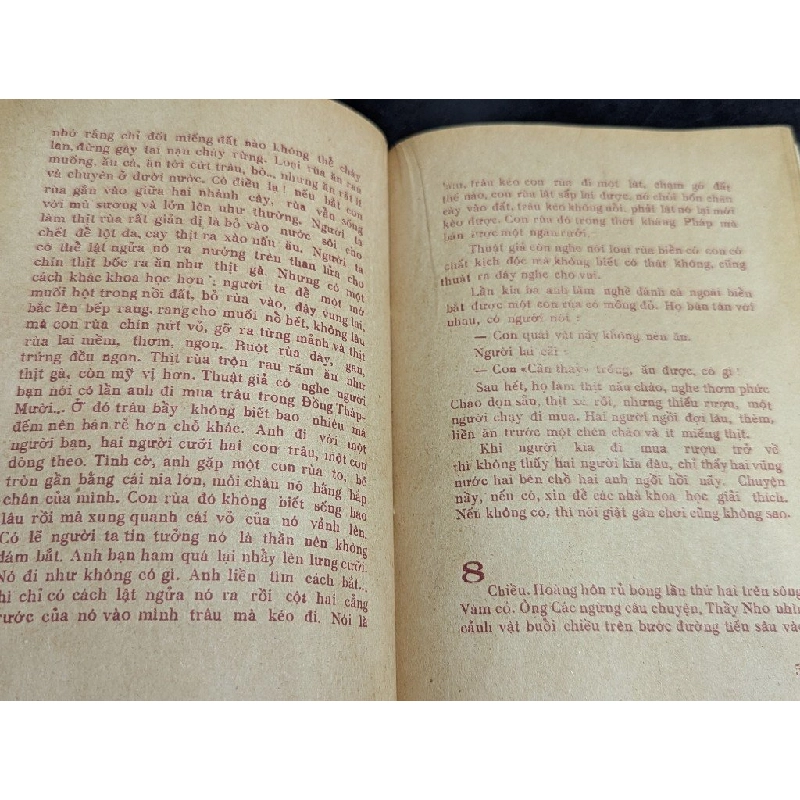 nhớ rằng chỉ đổi miếng đất nào không thể chảy
lan, đừng gây tai nạn cháy rừng. Loại rùa ăn rau
muống, ăn cá, ăn tới cứt trâu, bò... nhưng ăn rất ít
và chuyên ở dưới nước. Có điều lạ! nếu bắt con
rùa gắn vào giữa hai nhánh cây, rùa vẫn sống
với mù sương và lớn lên như thường. Người ta
làm thịt rùa rất giản dị là bỏ vào nước sôi cho
chết để lột da, cạy thịt ra xào nấu ăn. Người ta
có thể lật ngửa nó ra nướng trên than lửa cho
chín thịt bốc ra ăn như thịt gà. Nhưng có một
cách khác khoa học hơn; người ta để một mớ
muối hột trong nồi đất, bỏ rùa vào, đậy vung lại,
bắc lên bếp rang, rang cho muối nổ hết, không lâu
mà con rùa chín nứt vỏ, gỡ ra từng mảnh và thịt
rùa lại mềm, thơm, ngon. Ruột rùa dày, gan,
trứng đều ngon. Thịt rùa trộn rau răm ăn như
thịt gà, còn mỹ vị hơn. Thuật giả có nghe người
bạn nói có lần anh đi mua trâu trong Đồng Tháp-
Mười... Ở đó trâu bầy không biết bao nhiêu mà
đếm nên bán rẻ hơn chỗ khác. Anh đi với một
người bạn, hai người cưỡi hai con trâu, một con
dòng theo. Tình cờ, anh gặp một con rùa to, bề
tròn gần bằng cái nia lớn, mỗi chân nó bằng bắp
chân của mình. Con rùa đó không biết sống bao
lâu rồi mà xung quanh cái vỏ của nó vảnh lên.
Có lẽ người ta tin tưởng nó là thần nên không
dám bắt. Anh bạn ham quá lại nhảy lên lưng cưỡi.
Nó đi như không có gì. Anh liền tìm cách bắt...
hì chỉ có cách lật ngửa nó ra rồi cột hai cẳng
rước của nó vào mình trâu mà kéo đi. Nói là
làm, trâu kéo con rùa đi một lát, chạm gò đất
thế nào, con rùa lật sắp lại được, nó chúi bốn chân
cày vào đất, trâu kéo không nổi, phải lật nó lại mới
kéo được. Con rùa đó trong thời kháng Pháp mà
bán được một ngàn rưỡi.
Thuật giả còn nghe nói loại rùa biển có con có
chất kịch độc mà không biết có thật không, cũng
thuật ra đây nghe cho vui.
Lần kia ba anh làm nghề đánh cá ngoài biển
bắt được một con rùa có mồng đỏ. Họ bàn tán với
nhau, có người nói:
— Con quái vật nầy không nên ăn.
Người lại cãi:
— Con «Cần thay» trống, ăn được, có gì!
Sau hết, họ làm thịt nấu cháo, nghe thơm phức
Cháo dọn sẵn, thịt xé rồi, nhưng thiếu rượu, một
người chạy đi mua. Hai người ngồi đợi lâu, thèm,
liền ăn trước một chén cháo và ít miếng thịt.
Khi người kia đi mua rượu trở về
thì không thấy hai người kia đâu, chỉ thấy hai vũng
nước hai bên chỗ hai anh ngồi hồi nãy. Chuyện
nầy, nếu có, xin để các nhà khoa học giải thích.
Nếu không có, thì nói giật gân chơi cũng không sao.
8
Chiều. Hoàng hôn rủ bóng lần thứ hai trên sông
Vàm cỏ. Ông Các ngừng câu chuyện, Thầy Nho nhìn
cảnh vật buổi chiều trên bước đường tiến sâu vào